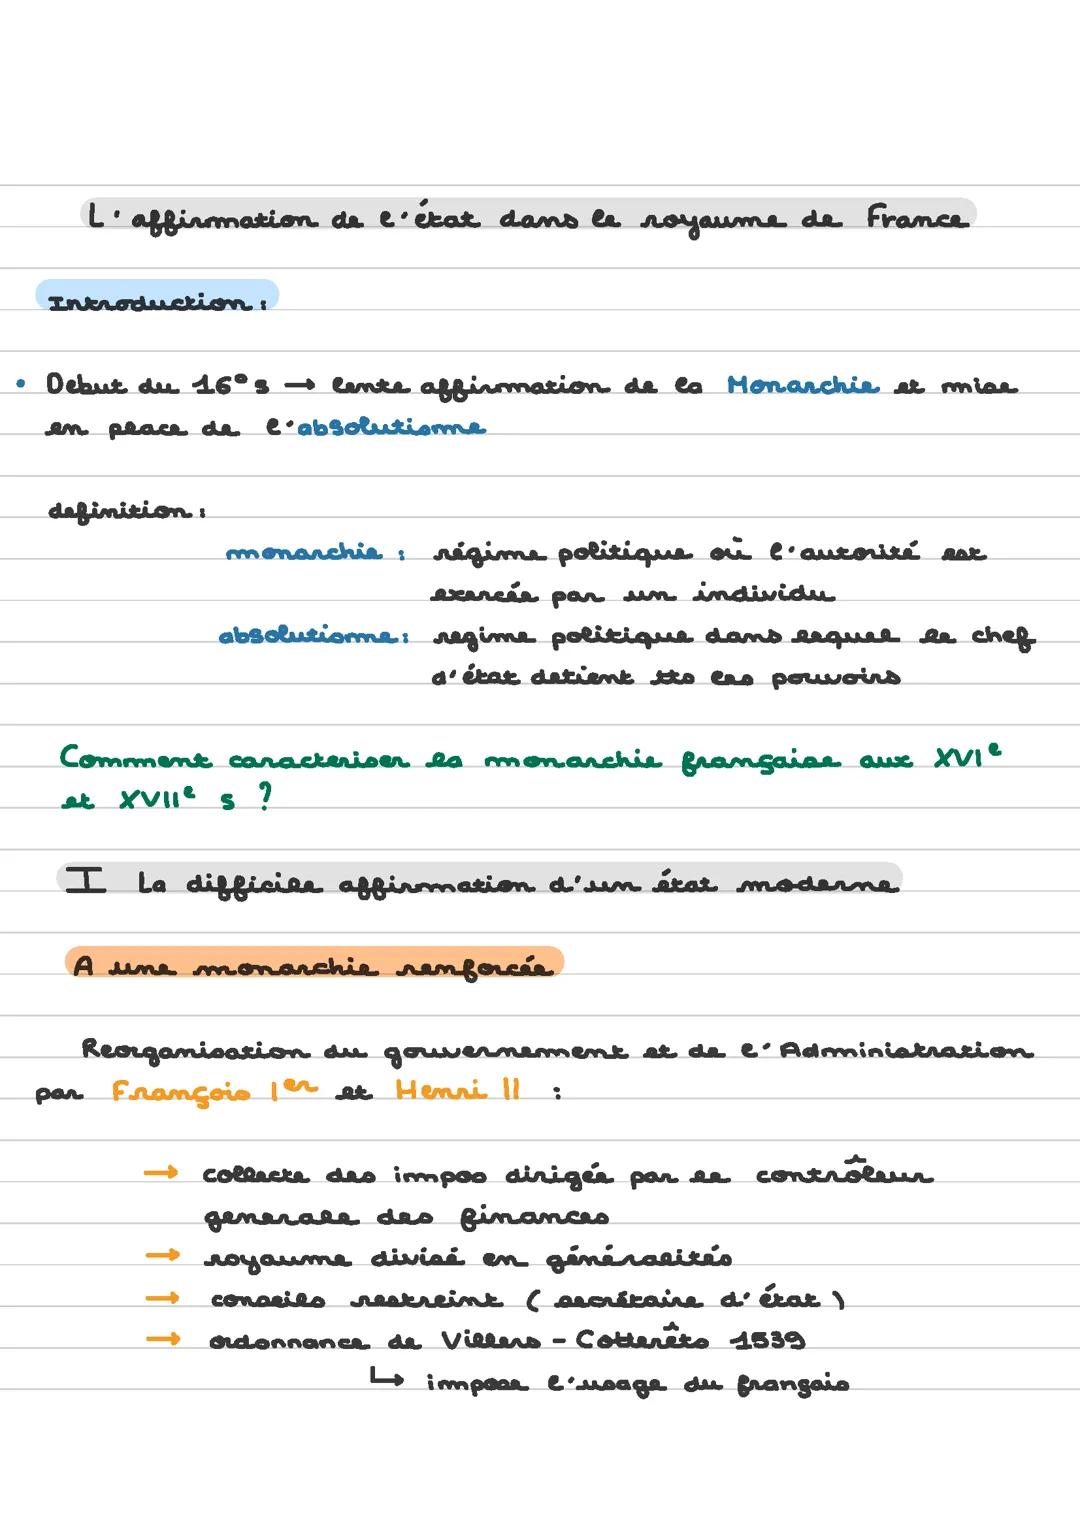 L'affirmation de l'état dans le royaume de France
Introduction :
• Debut du 16° s → lente affirmation de la Monarchie et mise
en place de l'absolutisme
definition :
monarchie : régime politique où l'autorité est
exercée par un individu
absolutisme : regime politique dans lequel le chef
d'état detient tts les pouvoirs
Comment caracteriser la monarchie française aux XVIe
et XVIIe s ?
I La difficile affirmation d'un état moderne
A une monarchie renforcée
Reorganisation du gouvernement et de l'Administration
par François Ier et Henri II :
→ collecte des impos dirigée par le contrôleur
generale des finances
→ royaume divisé en généralités
→ conseils restreint ( secrétaire d'état )
→ ordonnance de Villers - Cotterêts 1539
↳ impose l'usage du français